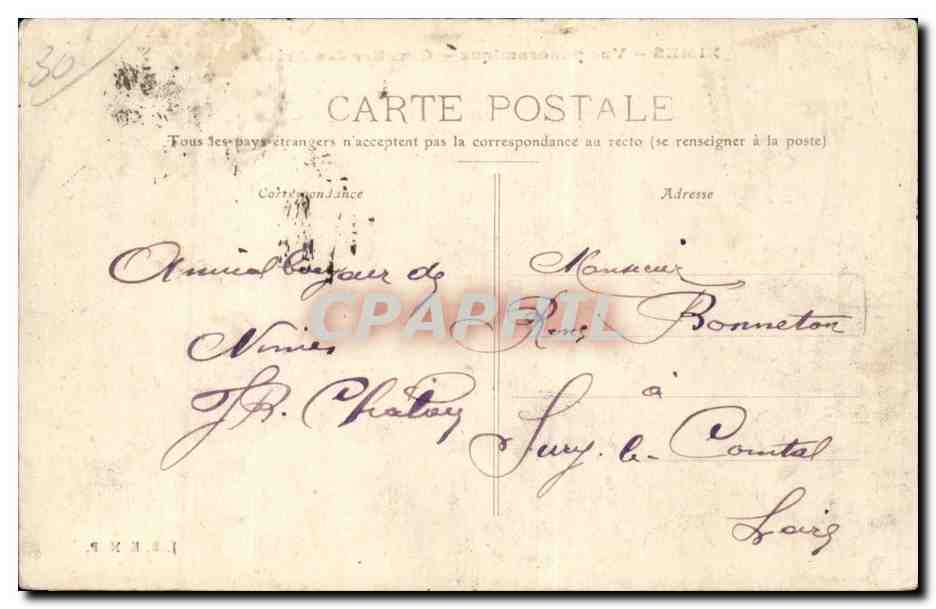 30
CARTE POSTALE
Tous les pays étrangers n'acceptent pas la correspondance au recto (se renseigner à la poste)
Correspondance
Adresse
Amical bonjour de
Nimes
JB. Chatay
Monsieur
René Bonneton
à
Sury-le-Comtal
Loire
CPAPHIL